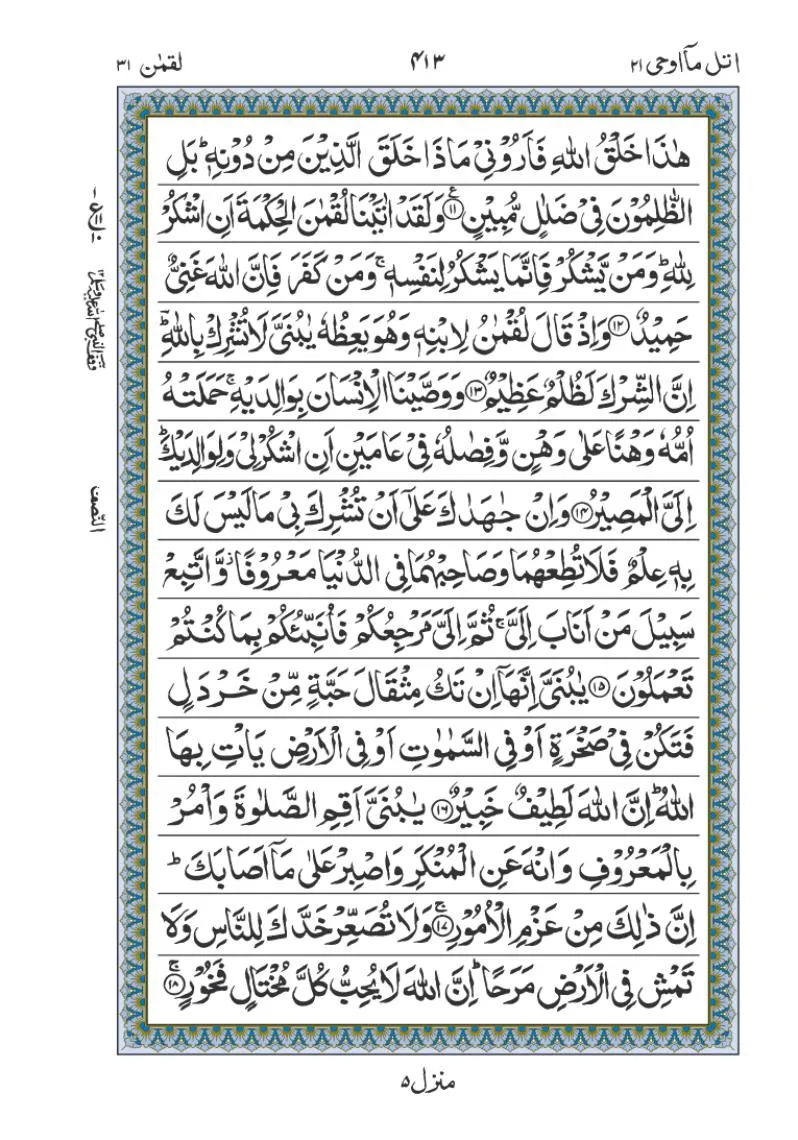 اتل مآاوحی ۲۱ ۴۱۳ لقمٰن ۳۱
هٰذَا خَلْقُ اللّٰهِ فَاَرُوْنِیْ مَاذَا خَلَقَ الَّذِیْنَ مِنْ دُوْنِهٖ ؕ بَلِ
الظّٰلِمُوْنَ فِیْ ضَلٰلٍ مُّبِیْنٍ ۱۱ ع وَلَقَدْ اٰتَیْنَا لُقْمٰنَ الْحِكْمَةَ اَنِ اشْكُرْ
لِلّٰهِ ؕ وَمَنْ یَّشْكُرْ فَاِنَّمَا یَشْكُرُ لِنَفْسِهٖ ۚ وَمَنْ كَفَرَ فَاِنَّ اللّٰهَ غَنِیٌّ
حَمِیْدٌ ۱۲ وَاِذْ قَالَ لُقْمٰنُ لِابْنِهٖ وَهُوَ یَعِظُهٗ یٰبُنَیَّ لَا تُشْرِكْ بِاللّٰهِ ؔؕ
اِنَّ الشِّرْكَ لَظُلْمٌ عَظِیْمٌ ۱۳ وَوَصَّیْنَا الْاِنْسَانَ بِوَالِدَیْهِ ۚ حَمَلَتْهُ
اُمُّهٗ وَهْنًا عَلٰی وَهْنٍ وَّفِصٰلُهٗ فِیْ عَامَیْنِ اَنِ اشْكُرْ لِیْ وَلِوَالِدَیْكَ ؕ
اِلَیَّ الْمَصِیْرُ ۱۴ وَاِنْ جٰهَدٰكَ عَلٰۤی اَنْ تُشْرِكَ بِیْ مَا لَیْسَ لَكَ
بِهٖ عِلْمٌ فَلَا تُطِعْهُمَا وَصَاحِبْهُمَا فِی الدُّنْیَا مَعْرُوْفًا ؗ وَّاتَّبِعْ
سَبِیْلَ مَنْ اَنَابَ اِلَیَّ ۚ ثُمَّ اِلَیَّ مَرْجِعُكُمْ فَاُنَبِّئُكُمْ بِمَا كُنْتُمْ
تَعْمَلُوْنَ ۱۵ یٰبُنَیَّ اِنَّهَاۤ اِنْ تَكُ مِثْقَالَ حَبَّةٍ مِّنْ خَرْدَلٍ
فَتَكُنْ فِیْ صَخْرَةٍ اَوْ فِی السَّمٰوٰتِ اَوْ فِی الْاَرْضِ یَاْتِ بِهَا
اللّٰهُ ؕ اِنَّ اللّٰهَ لَطِیْفٌ خَبِیْرٌ ۱۶ یٰبُنَیَّ اَقِمِ الصَّلٰوةَ وَاْمُرْ
بِالْمَعْرُوْفِ وَانْهَ عَنِ الْمُنْكَرِ وَاصْبِرْ عَلٰی مَاۤ اَصَابَكَ ؕ
اِنَّ ذٰلِكَ مِنْ عَزْمِ الْاُمُوْرِ ۱۷ ۚ وَلَا تُصَعِّرْ خَدَّكَ لِلنَّاسِ وَلَا
تَمْشِ فِی الْاَرْضِ مَرَحًا ؕ اِنَّ اللّٰهَ لَا یُحِبُّ كُلَّ مُخْتَالٍ فَخُوْرٍ ۱۸ ۚ
النّصف
منزل ۵